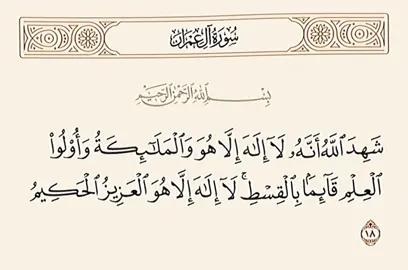 سُورَةُ آلِ عِمۡرَان
بِسۡمِ ٱللَّهِ ٱلرَّحۡمَٰنِ ٱلرَّحِيمِ
شَهِدَ ٱللَّهُ أَنَّهُۥ لَآ إِلَٰهَ إِلَّا هُوَ وَٱلۡمَلَٰٓئِكَةُ وَأُوْلُواْ
ٱلۡعِلۡمِ قَآئِمَۢا بِٱلۡقِسۡطِۚ لَآ إِلَٰهَ إِلَّا هُوَ ٱلۡعَزِيزُ ٱلۡحَكِيمُ
١٨